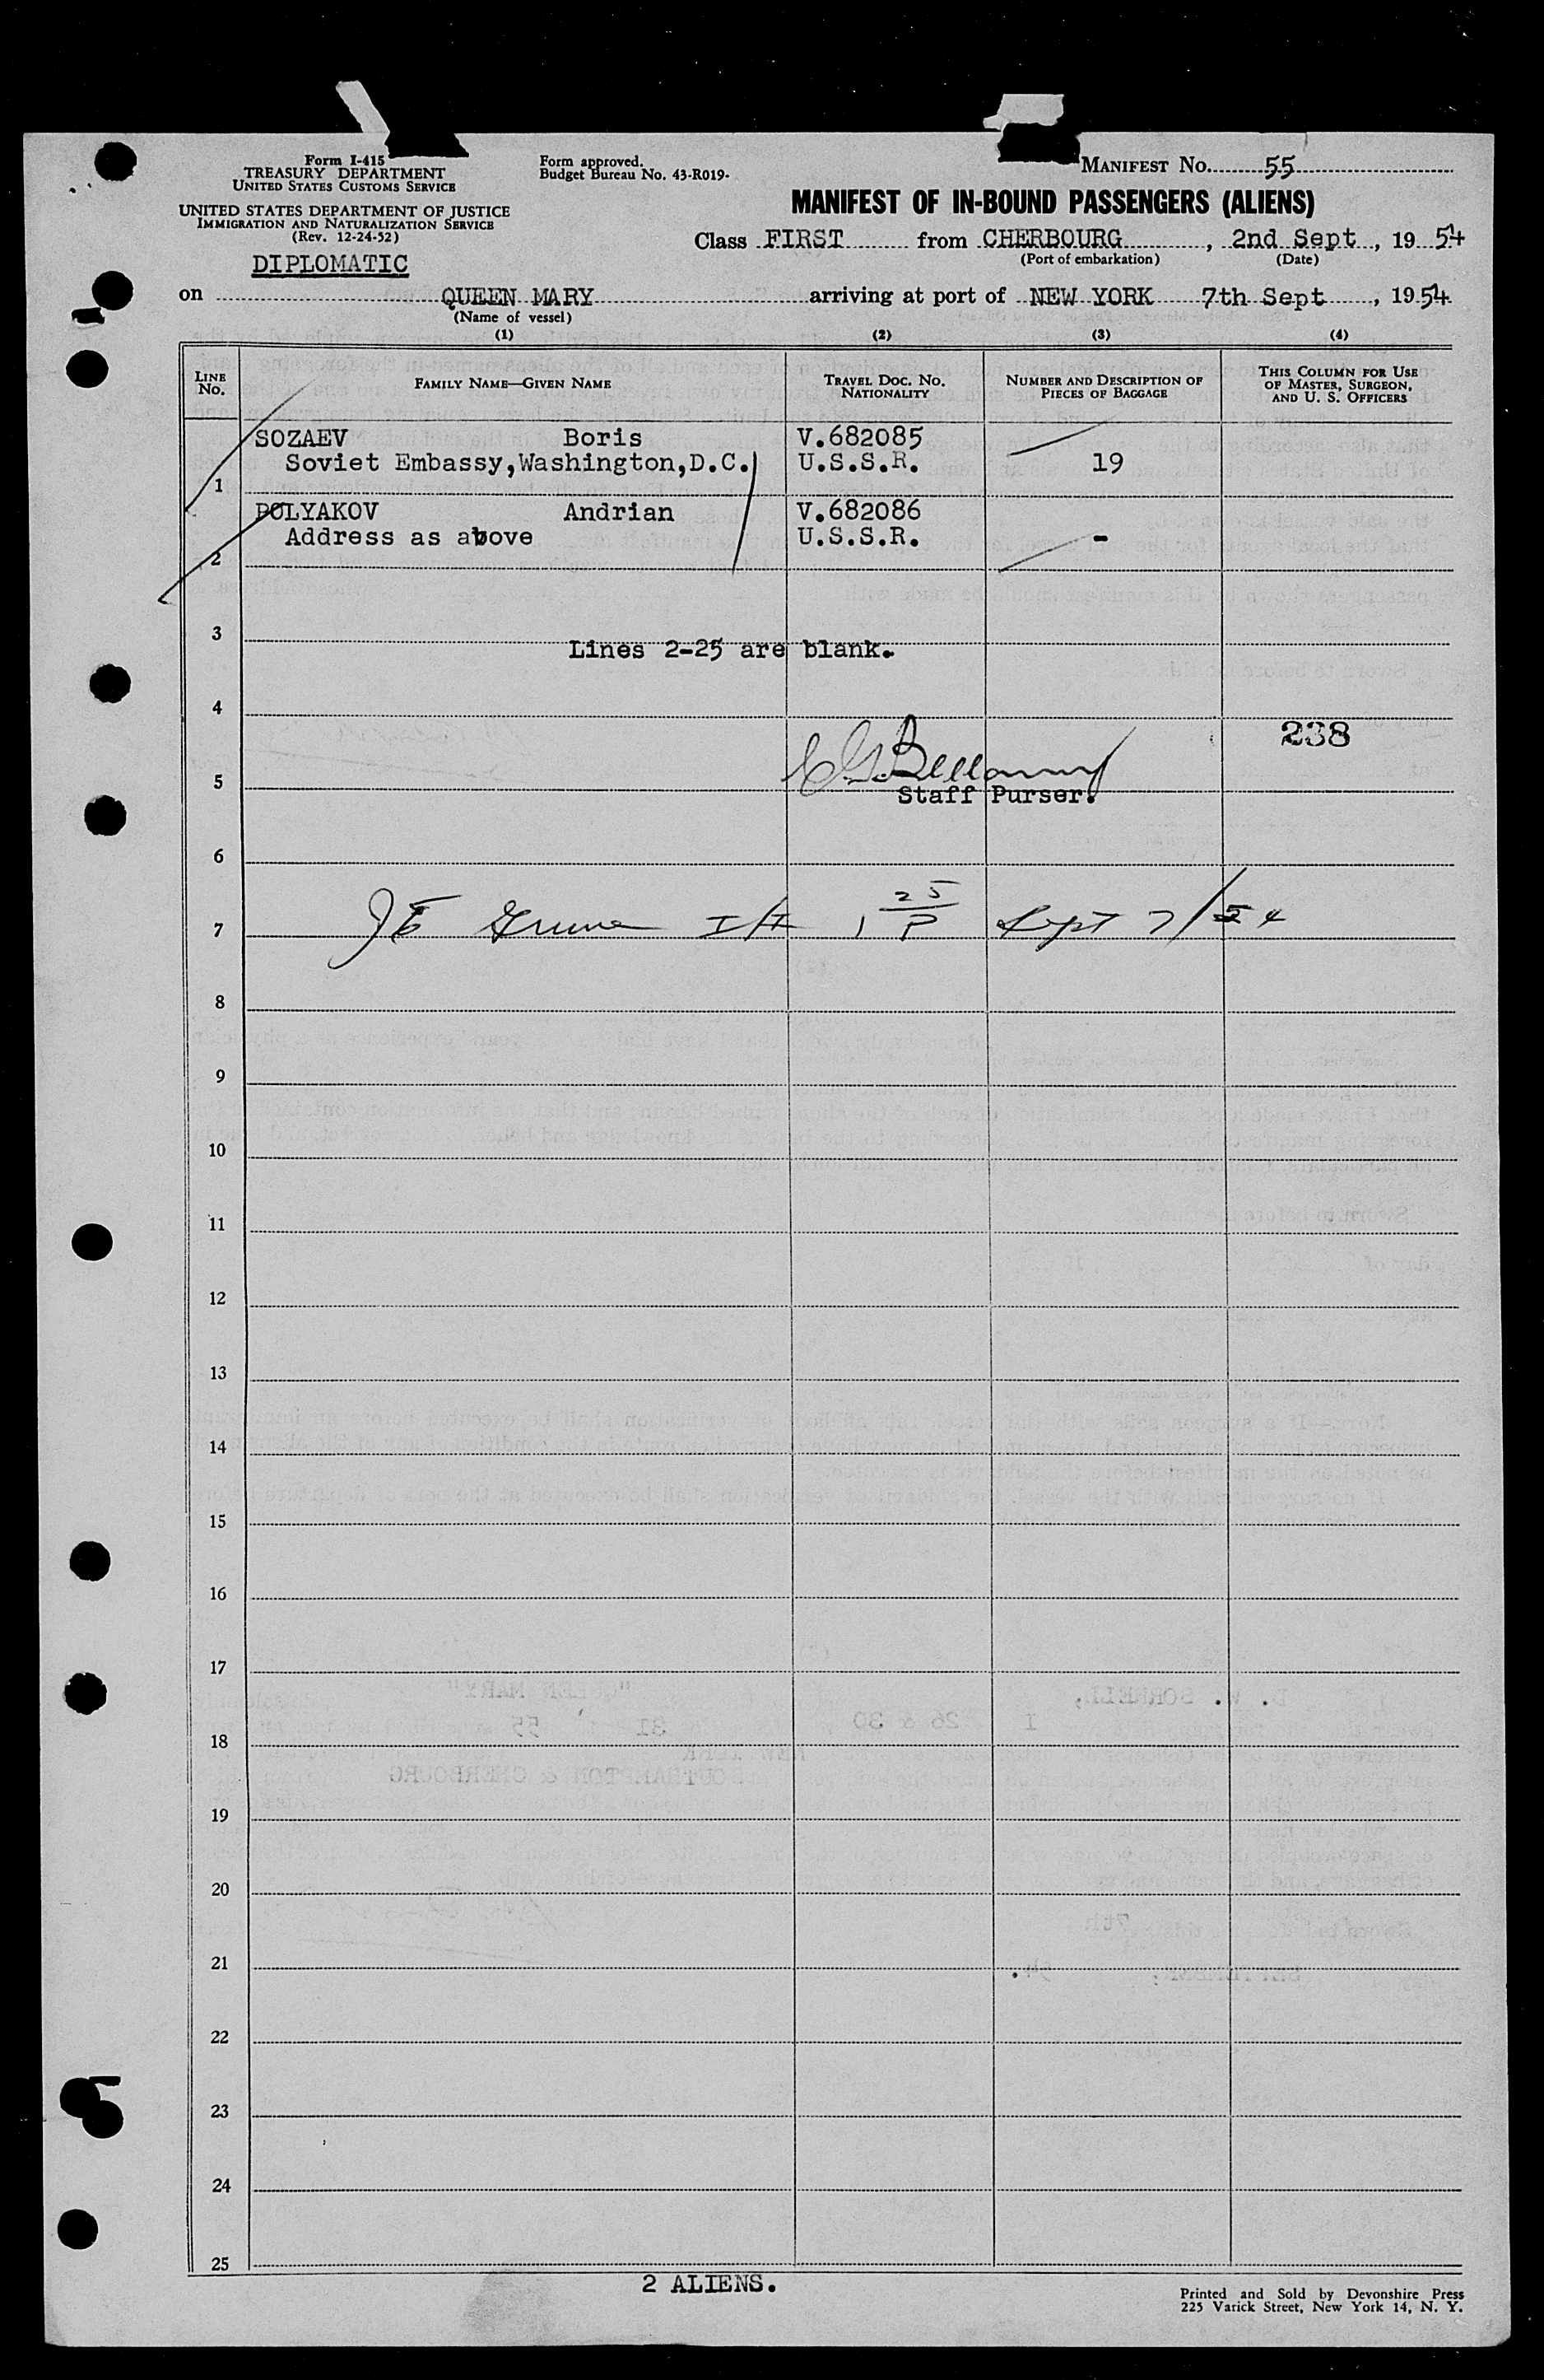 Form I-415
TREASURY DEPARTMENT
UNITED STATES CUSTOMS SERVICE
UNITED STATES DEPARTMENT OF JUSTICE
IMMIGRATION AND NATURALIZATION SERVICE
(Rev. 12-24-52)
Form approved.
Budget Bureau No. 43-R019-
MANIFEST NO. 55
MANIFEST OF IN-BOUND PASSENGERS (ALIENS)
Class FIRST from CHERBOURG, 2nd Sept, 19 54
(Port of embarkation) (Date)
DIPLOMATIC
on QUEEN MARY arriving at port of NEW YORK 7th Sept, 1954
(Name of vessel)
(1) (2) (3) (4)
LINE NO. FAMILY NAME—GIVEN NAME TRAVEL DOC. NO. NATIONALITY NUMBER AND DESCRIPTION OF PIECES OF BAGGAGE THIS COLUMN FOR USE OF MASTER, SURGEON, AND U. S. OFFICERS
SOZAEV Boris V.682085
Soviet Embassy,Washington,D.C. U.S.S.R. 19
1
POLYAKOV Andrian V.682086
Address as above U.S.S.R. -
2
3
Lines 2-25 are blank.
4
238
5
Staff Purser.
6
7 Sept 7/54
8
9
10
11
12
13
14
15
16
17
18
19
20
21
22
23
24
25
2 ALIENS.
Printed and Sold by Devonshire Press
225 Varick Street, New York 14, N. Y.